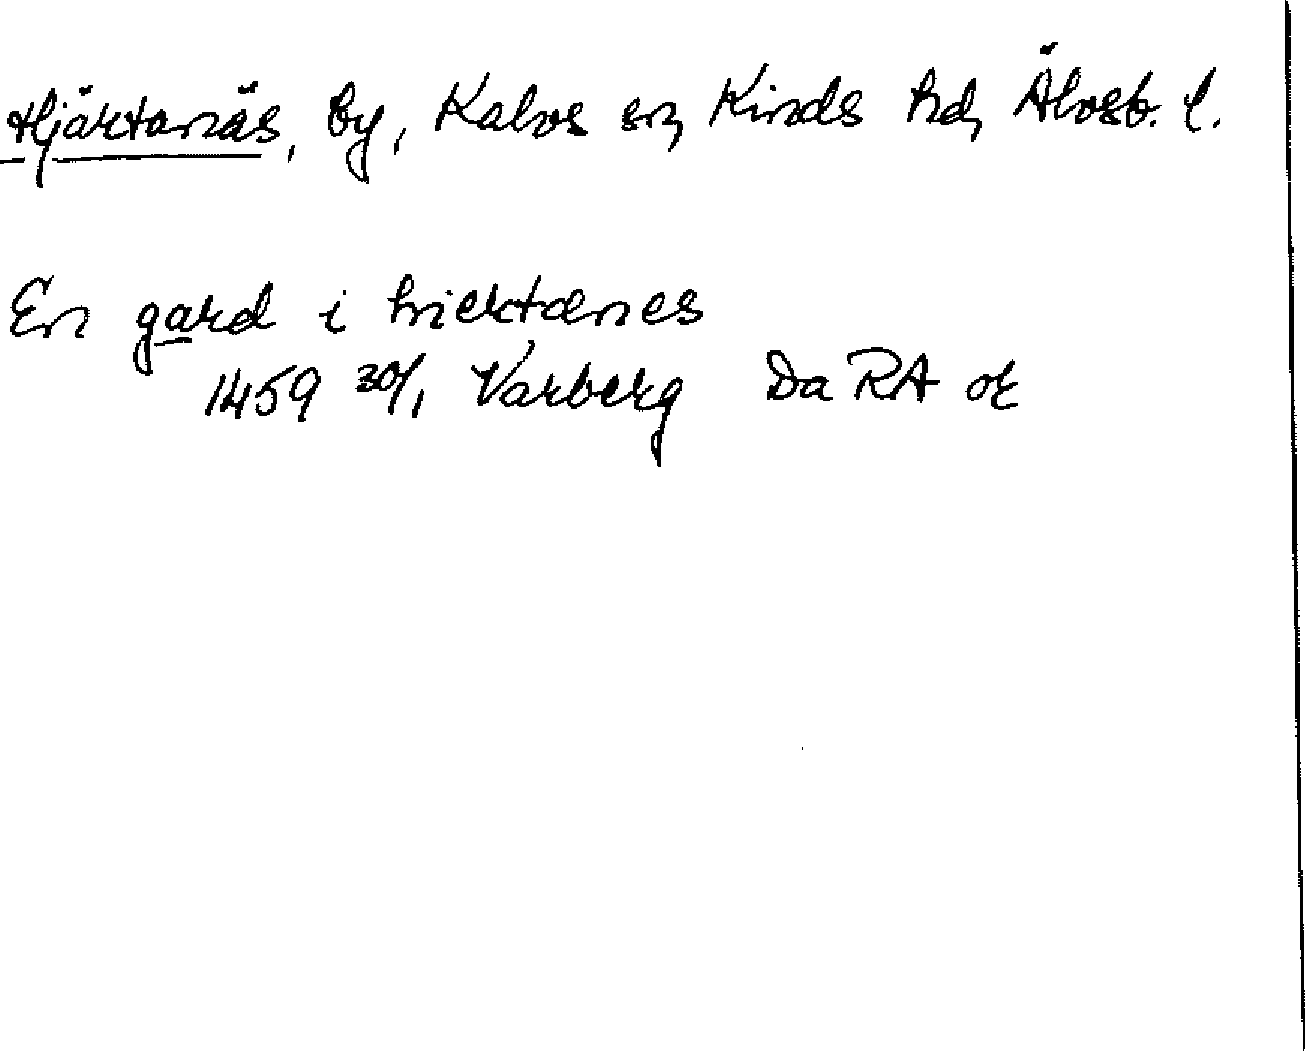 Hjärtanäs, by, Kalvs sn, Kinds hd, Älvsb. l.
En gard i hiertænes
1459 30/1 Varberg Da RA or